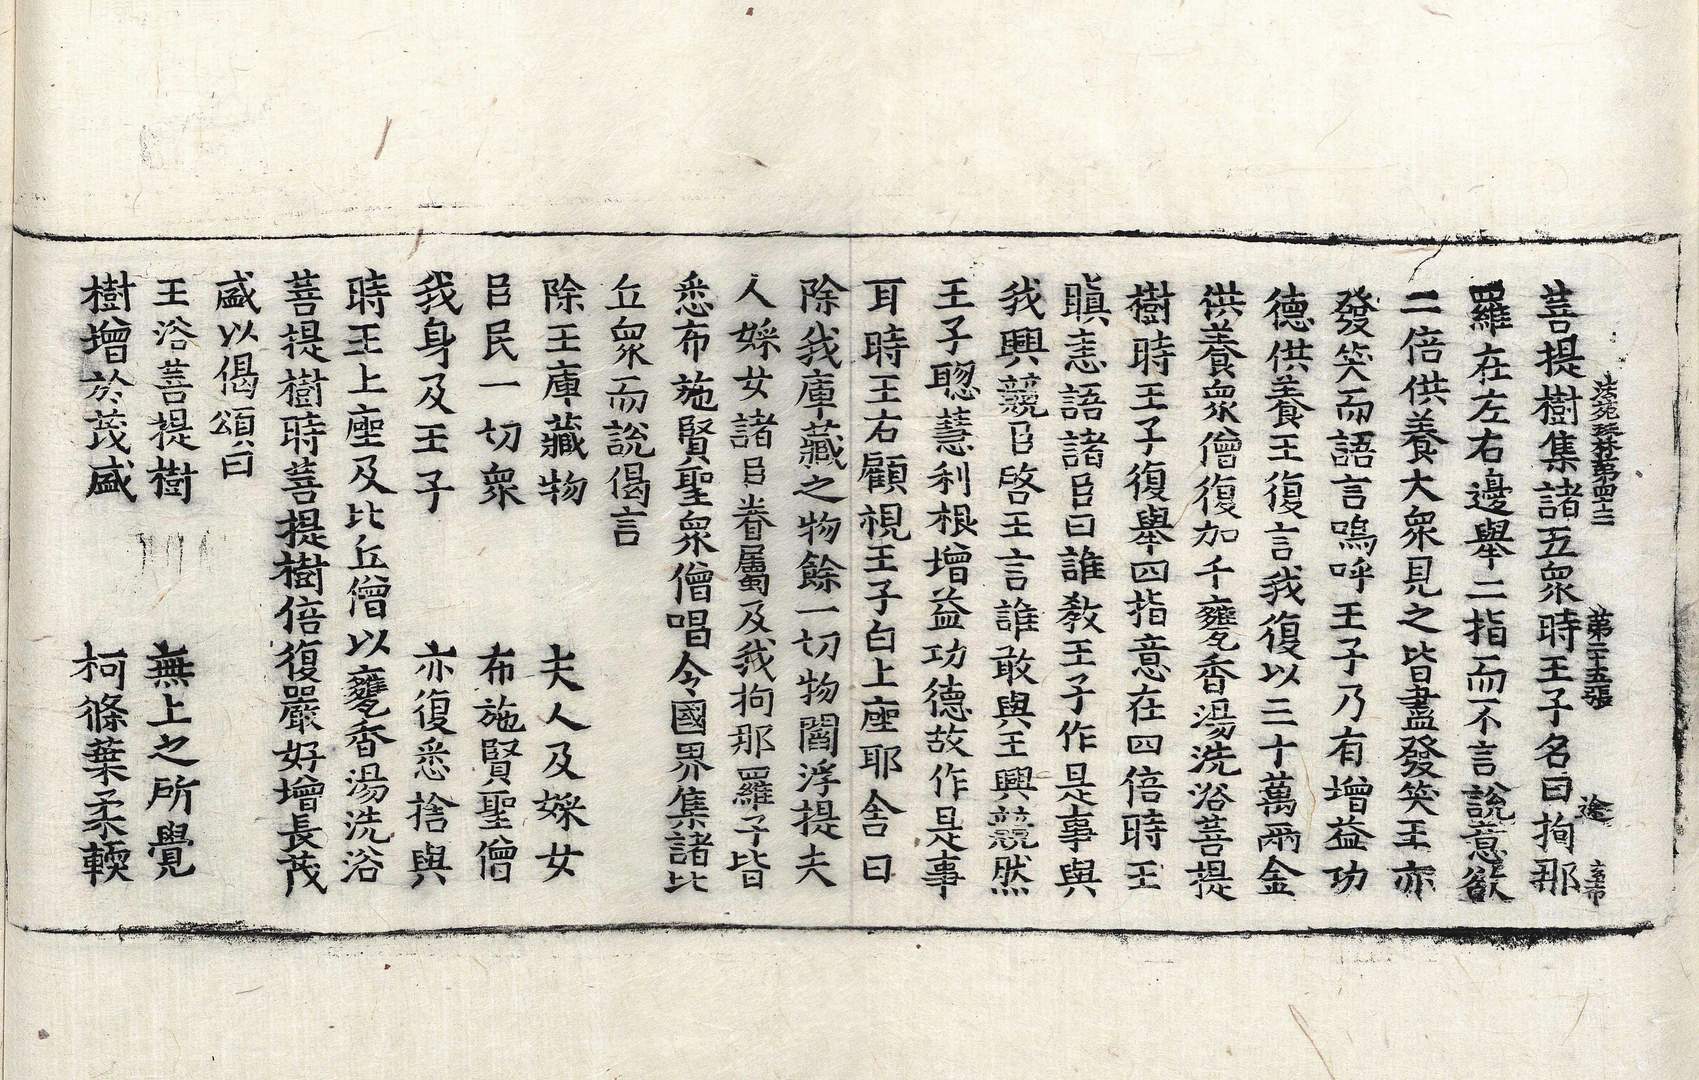 法苑珠林第四十二 第二十五張 途
菩提樹集諸五衆時王子名曰拘那
羅在左右邊舉二指而不言說意欲
二倍供養大衆見之皆盡發笑王亦
發笑而語言嗚呼王子乃有增益功
德供養王復言我復以三十萬兩金
供養衆僧復加千甕香湯洗浴菩提
樹時王子復舉四指意在四倍時王
瞋恚語諸臣曰誰教王子作是事與
我興競臣啓王言誰敢與王興競然
王子聦慧利根增益功德故作是事
耳時王右顧視王子白上座耶舍曰
除我庫藏之物餘一切物閻浮提夫
人婇女諸臣眷屬及我拘那羅子皆
悉布施賢聖衆僧唱令國界集諸比
丘衆而說偈言
除王庫藏物 夫人及婇女
臣民一切衆 布施賢聖僧
我身及王子 亦復悉捨與
時王上座及比丘僧以甕香湯洗浴
菩提樹時菩提樹倍復嚴好增長茂
盛以偈頌曰
王浴菩提樹 無上之所覺
樹增於茂盛 柯條葉柔輭